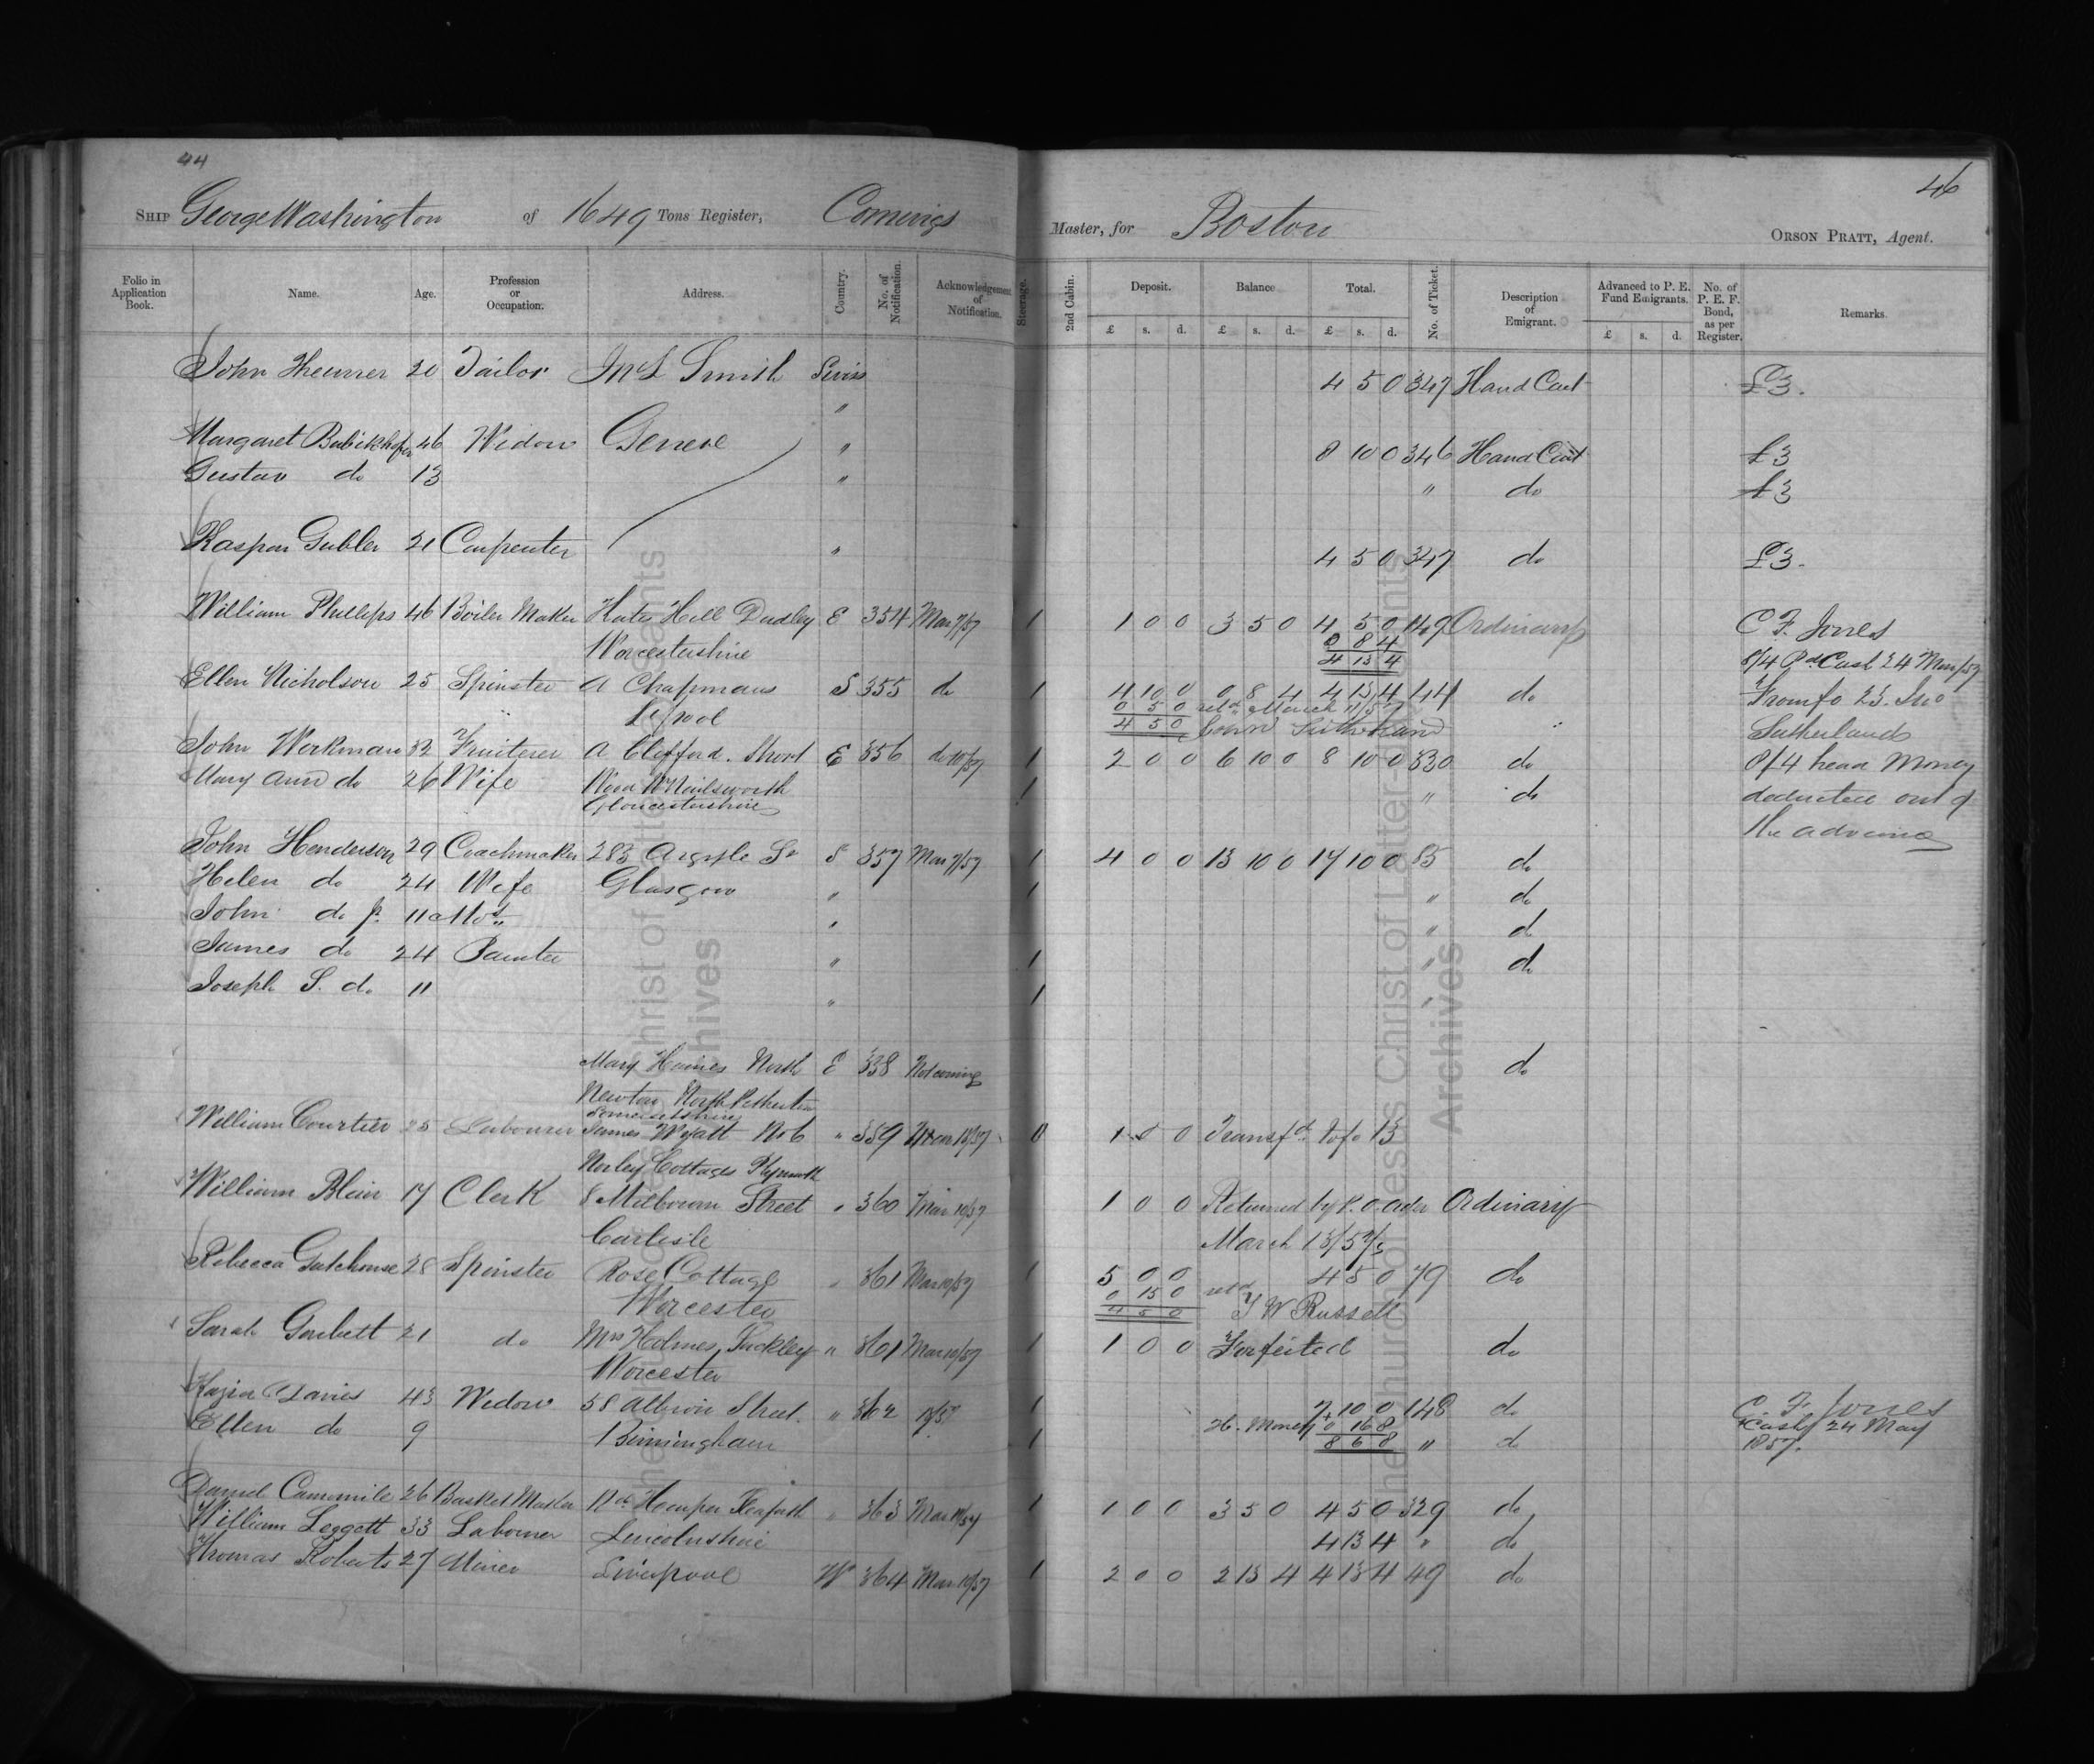 44
46
SHIP George Washington of 1649 Tons Register, Comings Master, for Boston ORSON PRATT, Agent.
Folio in Application Book. Name. Age. Profession or Occupation. Address. Country. No. of Notification. Acknowledgement of Notification. Steerage. 2nd Cabin. Deposit. Balance Total. No. of Ticket. Description of Emigrant. Advanced to P. E. Fund Emigrants. No. of P. E. F. Bond, as per Register. Remarks.
£ s. d. £ s. d. £ s. d. £ s. d.
John 20 Tailor Smith Swiss 4 5 0 347 Hand Cart £3.
"
Margaret 46 Widow Geneve " 8 10 0 346 Hand Cart £3
Gustav do 13 " " do £3
Kaspar Gubler 21 Carpenter " 4 5 0 347 do £3.
William Phillips 46 Boiler Maker Kates Hill Dudley E 354 Mar 7/57 1 1 0 0 3 5 0 4 5 0 149 Ordinary C F. Jones
Worcestershire 0 8 4
4 13 4 8/4 Pd Cash 24 Mar/57
Ellen Nicholson 25 Spinster A Chapmans S 355 do 1 4 10 0 0 8 4 4 13 4 144 do From fo 23. Jno
L'pool 0 5 0 retd March 11/57
4 5 0 Sutherland Sutherland
John Workman 32 Fruiterer A Clifford. Short E 356 do 10/57 1 2 0 0 6 10 0 8 10 0 330 do 8/4 head Money
Mary Ann do 26 Wife Wood Nailsworth 1 " do deducted out of
Gloucestershire the advance
John Henderson 29 Coachmaker 283 Argyle St S 357 Mar 7/57 1 4 0 0 13 10 0 17 10 0 85 do
Helen do 24 Wife Glasgow " 1 " do
John do jr. 11 Mos " " do
James do 24 Painter " 1 " do
Joseph S. do 11 " 1 "
Mary Haines North E 338 Not coming do
Newton North Petherton
Somersetshire
William Courtier 25 Labourer James Wyatt No 6 " 359 Mar 10/57 1 0 0 Transfd to fo 13
Norley Cottages Plymouth
William Blair 17 Clerk 8 Milbourn Street " 360 Mar 10/57 1 0 0 Returned by P. O. order Ordinary
Carlisle March 13/57
Rebecca Gatehouse 28 Spinster Rose Cottage " 361 Mar 10/57 1 5 0 0 4 5 0 79 do
Worcester 0 15 0 retd
4 5 0 W Russell
Sarah Gorbett 21 do Mrs Holmes, " 361 Mar 10/57 1 1 0 0 Forfeited do
Worcester
Kezia Davies 43 Widow 58 Albion Street. " 362 1 7 10 0 148 do C. F. Jones
Ellen do 9 Birmingham 1 H. Money 0 16 8 " do Cash 24 Mar
8 6 8 1857.
Daniel Camomile 26 Basket Maker " 363 Mar 10/57 1 1 0 0 3 5 0 4 5 0 329 do
William Leggett 33 Labourer Lincolnshire 4 13 4 " do
Thomas Roberts 27 Miner Liverpool W 364 Mar 10/57 1 2 0 0 2 13 4 4 13 4 49 do
The Church of Jesus Christ of Latter-day Saints
Archives